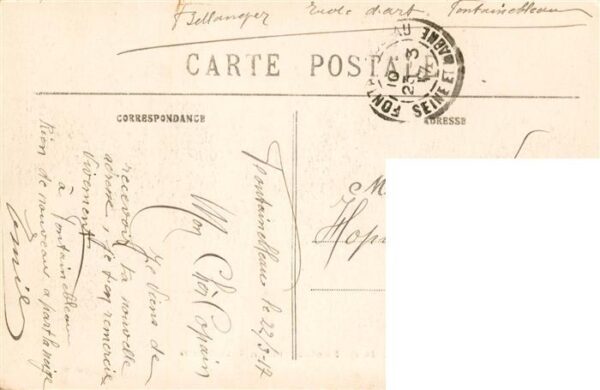 F Bellanger Ecole d'art Fontainebleau
CARTE POSTALE
FONT AU
10
23-3
17
SEINE ET MARNE
CORRESPONDANCE
ADRESSE
Fontainebleau le 22/3-17
Mon Cher Copain
Je viens de
recevoir ta nouvelle
adresse, je t'en remercie
vivement
à Fontainebleau
Rien de nouveau à part la neige
Emile
M
Hop